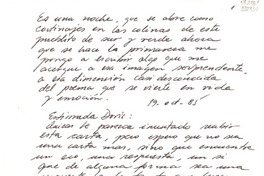 Es una noche, que se abre como
cortinajes en las colinas de este
pueblito de sur y verde ahora
que se hace la primavera me
pongo a escribir algo que me
acerque a esa imagen sorprendente
a esa dimensión clan desconocida
del poema que se vierte en vida
y emoción.
19. oct. 85
Estimada Doris:
Quizá te parezca inusitado recibir
esta carta, pero espero que no sea
una carta mas, sino que encuentre
un eco, una respuesta, un si
que de alguna forma sea una